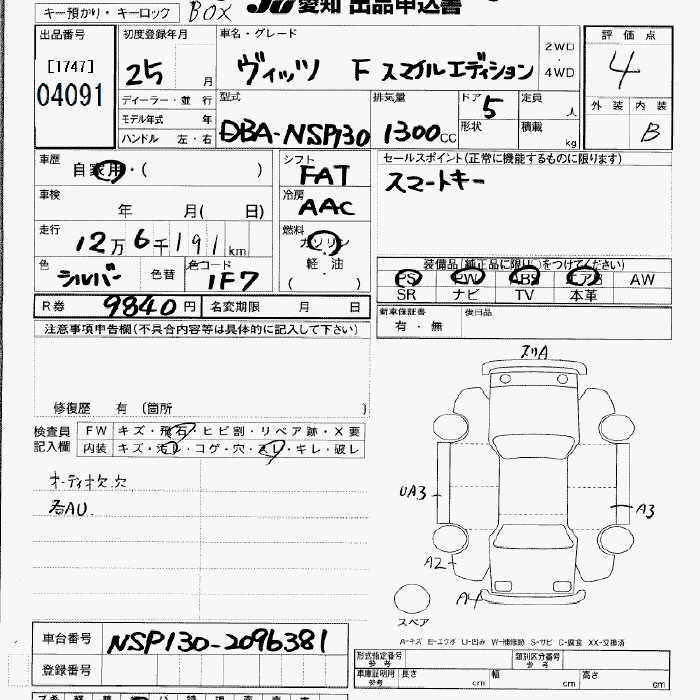 キー預かり・キーロック BOX
JU 愛知 出品申込書
出品番号 初度登録年月 車名・グレード 評価点
[1747]
04091
25 月
ヴィッツ F スマイルエディション
2WD
・
4WD
4
ディーラー・並行
モデル年式 年
ハンドル 左・右
型式 排気量 ドア 5 定員 人
DBA-NSP130 1300cc
形状 積載 kg
外装 内装
B
車歴 自家用・( )
シフト FAT
セールスポイント(正常に機能するものに限ります)
スマートキー
車検 年 月( 日)
冷房 AAC
走行 12万6千191km
燃料 ガソリン
軽・油
( )
色 シルバー 色替 色コード 1F7
装備品(純正品に限り○をつけてください)
PS PW ABS エアB AW
SR ナビ TV 本革
R券 9840円 名変期限 月 日
新車保証書 後日品
有・無
注意事項申告欄(不具合内容等は具体的に記入して下さい)
修復歴 有 〔箇所 〕
検査員
記入欄
FW キズ・飛石・ヒビ割・リペア跡・X要
内装 キズ・汚レ・コゲ・穴・スレ・キレ・破レ
オーディオ欠、穴
各AU
スリA
UA3
A3
A2
A4
スペア
A-キズ E-エクボ U-凹み W-補修跡 S-サビ C-腐食 XX-交換済
車台番号 NSP130-2096381
登録番号
形式指定番号
参考
類別区分番号
参考
車庫証明用
参考
長さ cm 幅 cm 高さ cm